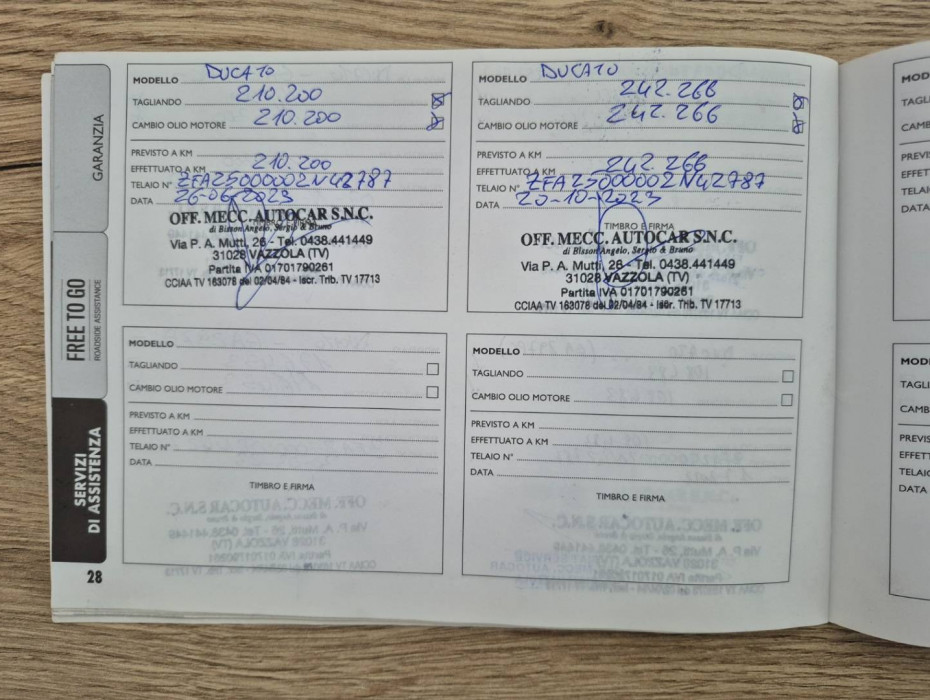 GARANZIA
FREE TO GO
ROADSIDE ASSISTANCE
SERVIZI
DI ASSISTENZA
28
MODELLO DUCATO
TAGLIANDO 210.200
CAMBIO OLIO MOTORE 210.200
PREVISTO A KM
EFFETTUATO A KM 210.200
TELAIO N° ZFA25000002N42787
DATA 26-06-2023
TIMBRO E FIRMA
OFF. MECC. AUTOCAR S.N.C.
di Bisson Angelo, Sergio & Bruno
Via P. A. Mutti, 26 - Tel. 0438.441449
31028 VAZZOLA (TV)
Partita IVA 01701790261
CCIAA TV 163078 del 02/04/84 - Iscr. Trib. TV 17713
MODELLO DUCATO
TAGLIANDO 242.266
CAMBIO OLIO MOTORE 242.266
PREVISTO A KM
EFFETTUATO A KM 242.266
TELAIO N° ZFA25000002N42787
DATA 20-10-2023
TIMBRO E FIRMA
OFF. MECC. AUTOCAR S.N.C.
di Bisson Angelo, Sergio & Bruno
Via P. A. Mutti, 26 - Tel. 0438.441449
31028 VAZZOLA (TV)
Partita IVA 01701790261
CCIAA TV 163078 del 02/04/84 - Iscr. Trib. TV 17713
MODELLO
TAGLIANDO
CAMBIO OLIO MOTORE
PREVISTO A KM
EFFETTUATO A KM
TELAIO N°
DATA
TIMBRO E FIRMA
MODELLO
TAGLIANDO
CAMBIO OLIO MOTORE
PREVISTO A KM
EFFETTUATO A KM
TELAIO N°
DATA
TIMBRO E FIRMA